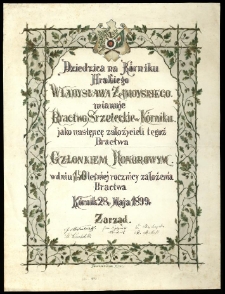 Dziedzica na Kórniku
Hrabiego
Władysława Zamoyskiego
mianuje
Bractwo Strzeleckie w Kórniku
jako następcę założycieli tegoż
Bractwa
Członkiem Honorowym
w dniu 150 letniej rocznicy założenia
Bractwa
Kórnik 28. Maja 1899.
Zarząd.